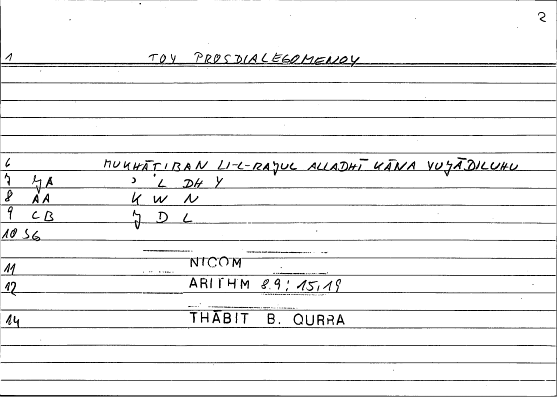 2
1 TOY PROSDIALEGOMENOY
6 MUKHĀTIBAN LI-L-RAǧUL ALLADHĪ KĀNA YUǧĀDILUHU
7 ǧA ʾ L DH Y
8 AA K W N
9 CB ǧ D L
10 SG
11 NICOM
12 ARITHM 8.9; 15,19
14 THĀBIT B. QURRA